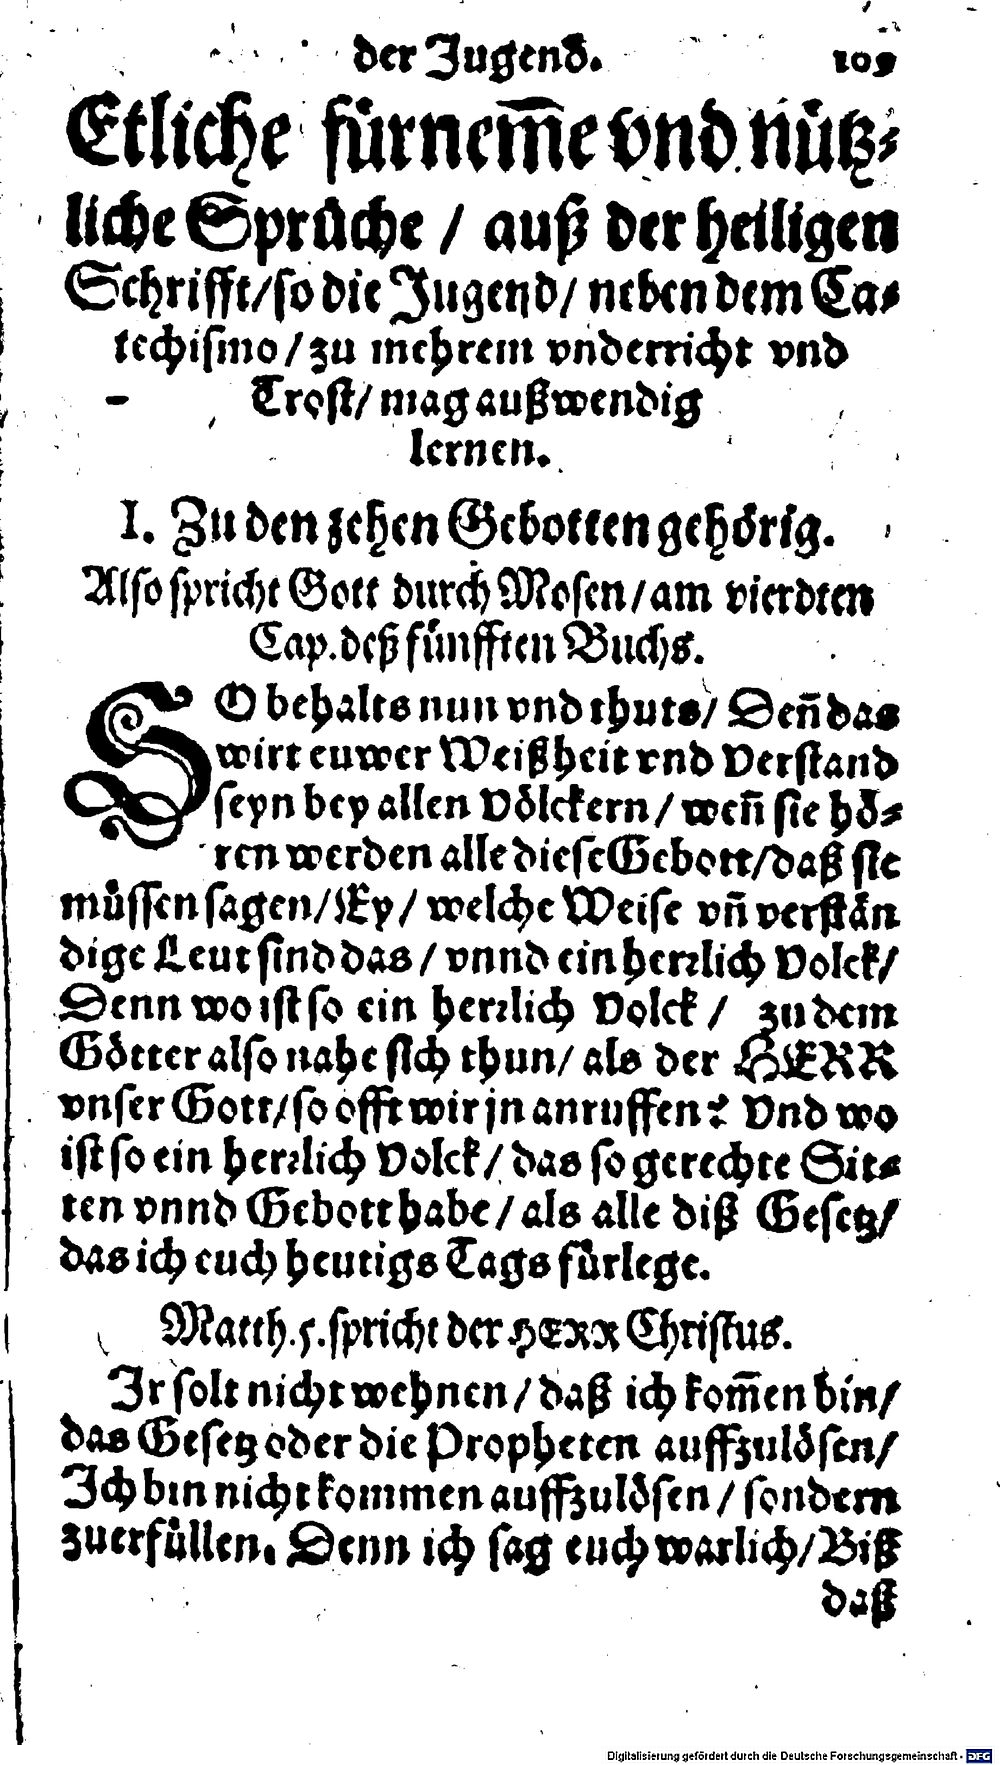 der Jugend. 109
Etliche fürnem̃e vnd nütz⸗
liche Sprüche / auß der heiligen
Schrifft/ so die Jugend/ neben dem Ca⸗
techismo / zu mehrem vnderricht vnd
Trost/ mag außwendig
lernen.
I. Zu den zehen Gebotten gehörig.
Also spricht Gott durch Mosen/ am vierdten
Cap. deß fünfften Buchs.
SO behalts nun vnd thuts/ Deñ das
wirt euwer Weißheit vnd Verstand
seyn bey allen Völckern / weñ sie hö⸗
ren werden alle diese Gebott/ daß sie
müssen sagen/ Ey / welche Weise vñ verstän
dige Leut sind das / vnnd ein herrlich Volck/
Denn wo ist so ein herrlich Volck / zu dem
Götter also nahe sich thun/ als der HERR
vnser Gott/ so offt wir jn anruffen? Vnd wo
ist so ein herrlich Volck / das so gerechte Sit⸗
ten vnnd Gebott habe / als alle diß Gesetz/
das ich euch heutigs Tags fürlege.
Matth. 5. spricht der HERR Christus.
Jr solt nicht wehnen / daß ich kom̃en bin/
das Gesetz oder die Propheten auffzulösen/
Jch bin nicht kommen auffzulösen / sondern
zuerfüllen. Denn ich sag euch warlich/ Biß
daß
Digitalisierung gefördert durch die Deutsche Forschungsgemeinschaft - DFG